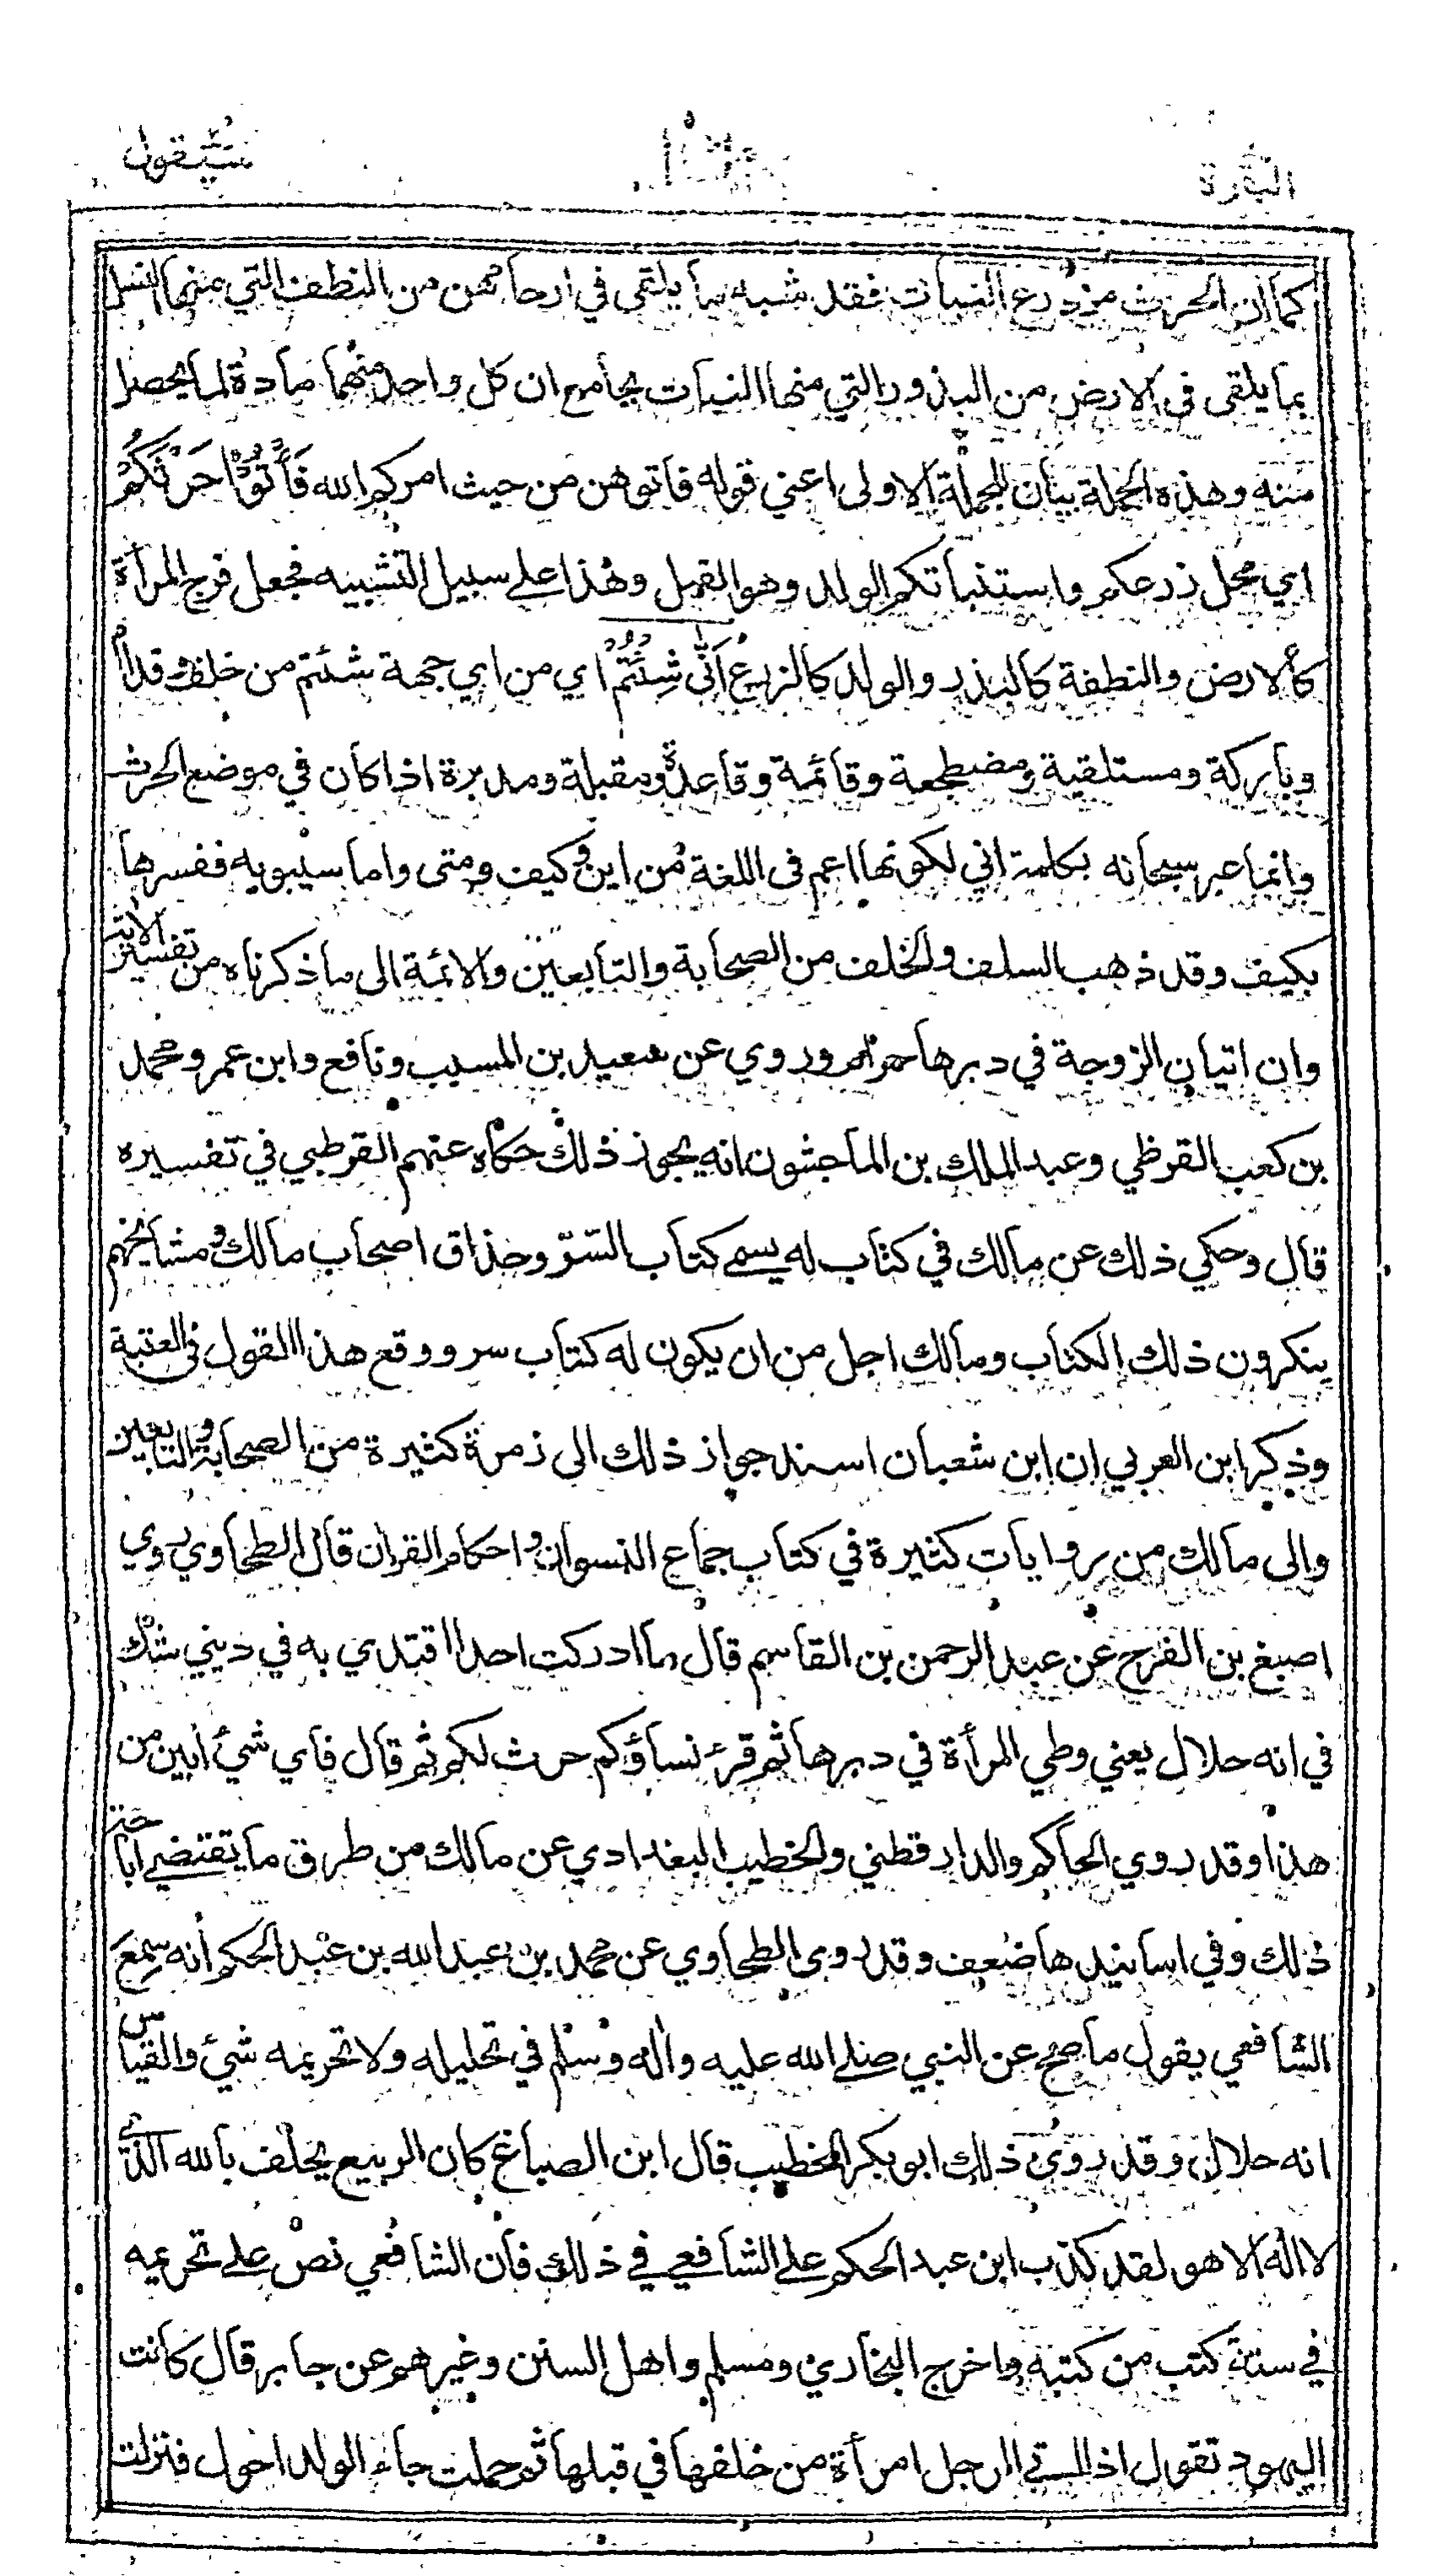 البقرة سيقول
كما ان الحرث مزدرع النبات فقد شبه ما يلقى في ارحامهن من النطف التي منها النسل
بما يلقى في الارض من البذور التي منها النبات بجامع ان كل واحد منهما مادة لما يحصل
منه وهذه الجملة بيان للجملة الاولى اعني قوله فاتوهن من حيث امركم الله فَأْتُوْا حَرْثَكُمْ
اي محل زرعكم واستنباتكم الولد وهو القبل وهذا على سبيل التشبيه فجعل فرج المرأة
كالارض والنطفة كالبذر والولد كالزرع اَنّٰى شِئْتُمْ اي من اي جهة شئتم من خلف وقدام
وباركة ومستلقية ومضطجعة وقائمة وقاعدة ومقبلة ومدبرة اذا كان في موضع الحرث
وانما عبر سبحانه بكلمة اني لكونها اعم في اللغة من اين وكيف ومتى واما سيبويه ففسرها
بكيف وقد ذهب السلف والخلف من الصحابة والتابعين والائمة الى ما ذكرناه من تفسير الاية
وان اتيان الزوجة في دبرها حرام وروي عن سعيد بن المسيب ونافع وابن عمر ومحمد
بن كعب القرظي وعبد الملك بن الماجشون انه يجوز ذلك حكاه عنهم القرطبي في تفسيره
قال وحكي ذلك عن مالك في كتاب له يسمى كتاب السّرّ وحذاق اصحاب مالك ومشائخهم
ينكرون ذلك الكتاب ومالك اجل من ان يكون له كتاب سر ووقع هذا القول في العتبية
وذكر ابن العربي ان ابن شعبان اسند جواز ذلك الى زمرة كثيرة من الصحابة والتابعين
والى مالك من روايات كثيرة في كتاب جماع النسوان واحكام القران قال الطحاوي روي
اصبغ بن الفرج عن عبد الرحمن بن القاسم قال ما ادركت احدا اقتدي به في ديني شك
في انه حلال يعني وطي المرأة في دبرها ثم قرء نساؤكم حرث لكم ثم قال فاي شيء ابين من
هذا وقد روي الحاكم والدارقطني والخطيب البغدادي عن مالك من طرق ما يقتضي اباحة
ذلك وفي اسانيدها ضعف وقد روى الطحاوي عن محمد بن عبد الله بن عبد الحكم انه سمع
الشافعي يقول ما صح عن النبي صلى الله عليه واٰله وسلم في تحليله ولا تحريمه شيء والقياس
انه حلال وقد روى ذلك ابو بكر الخطيب قال ابن الصباغ كان الربيع يحلف بالله الذي
لا اله الا هو لقد كذب ابن عبد الحكم على الشافعي في ذلك فان الشافعي نص على تحريمه
في ستة كتب من كتبه واخرج البخاري ومسلم واهل السنن وغيرهم عن جابر قال كانت
اليهود تقول اذا اتى الرجل امرأة من خلفها في قبلها ثم حملت جاء الولد احول فنزلت